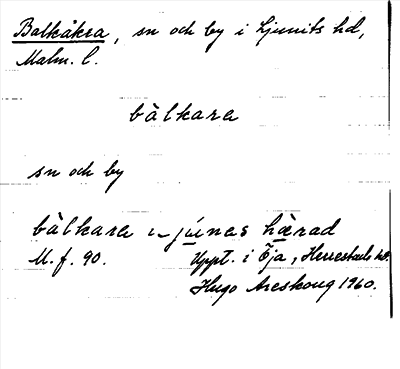 Balkåkra, sn och by i Ljunits hd,
Malm. l.
bàlkara
sn och by
bàlkara ju̇́nas hærad
M.f. 90. Uppt. i Öja, Herrestads hd.
Hugo Areskoug 1960.